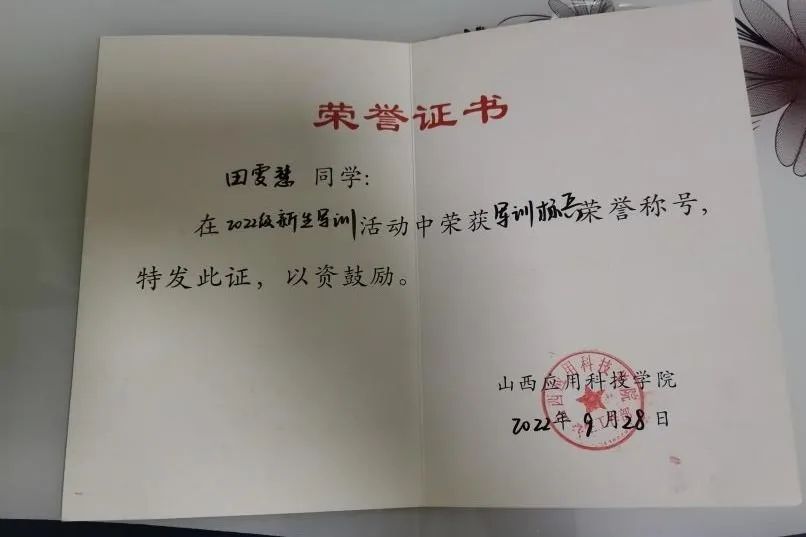 荣誉证书
田雯慧 同学：
在2022级新生军训活动中荣获军训标兵荣誉称号，
特发此证，以资鼓励。
山西应用科技学院
2022年9月28日